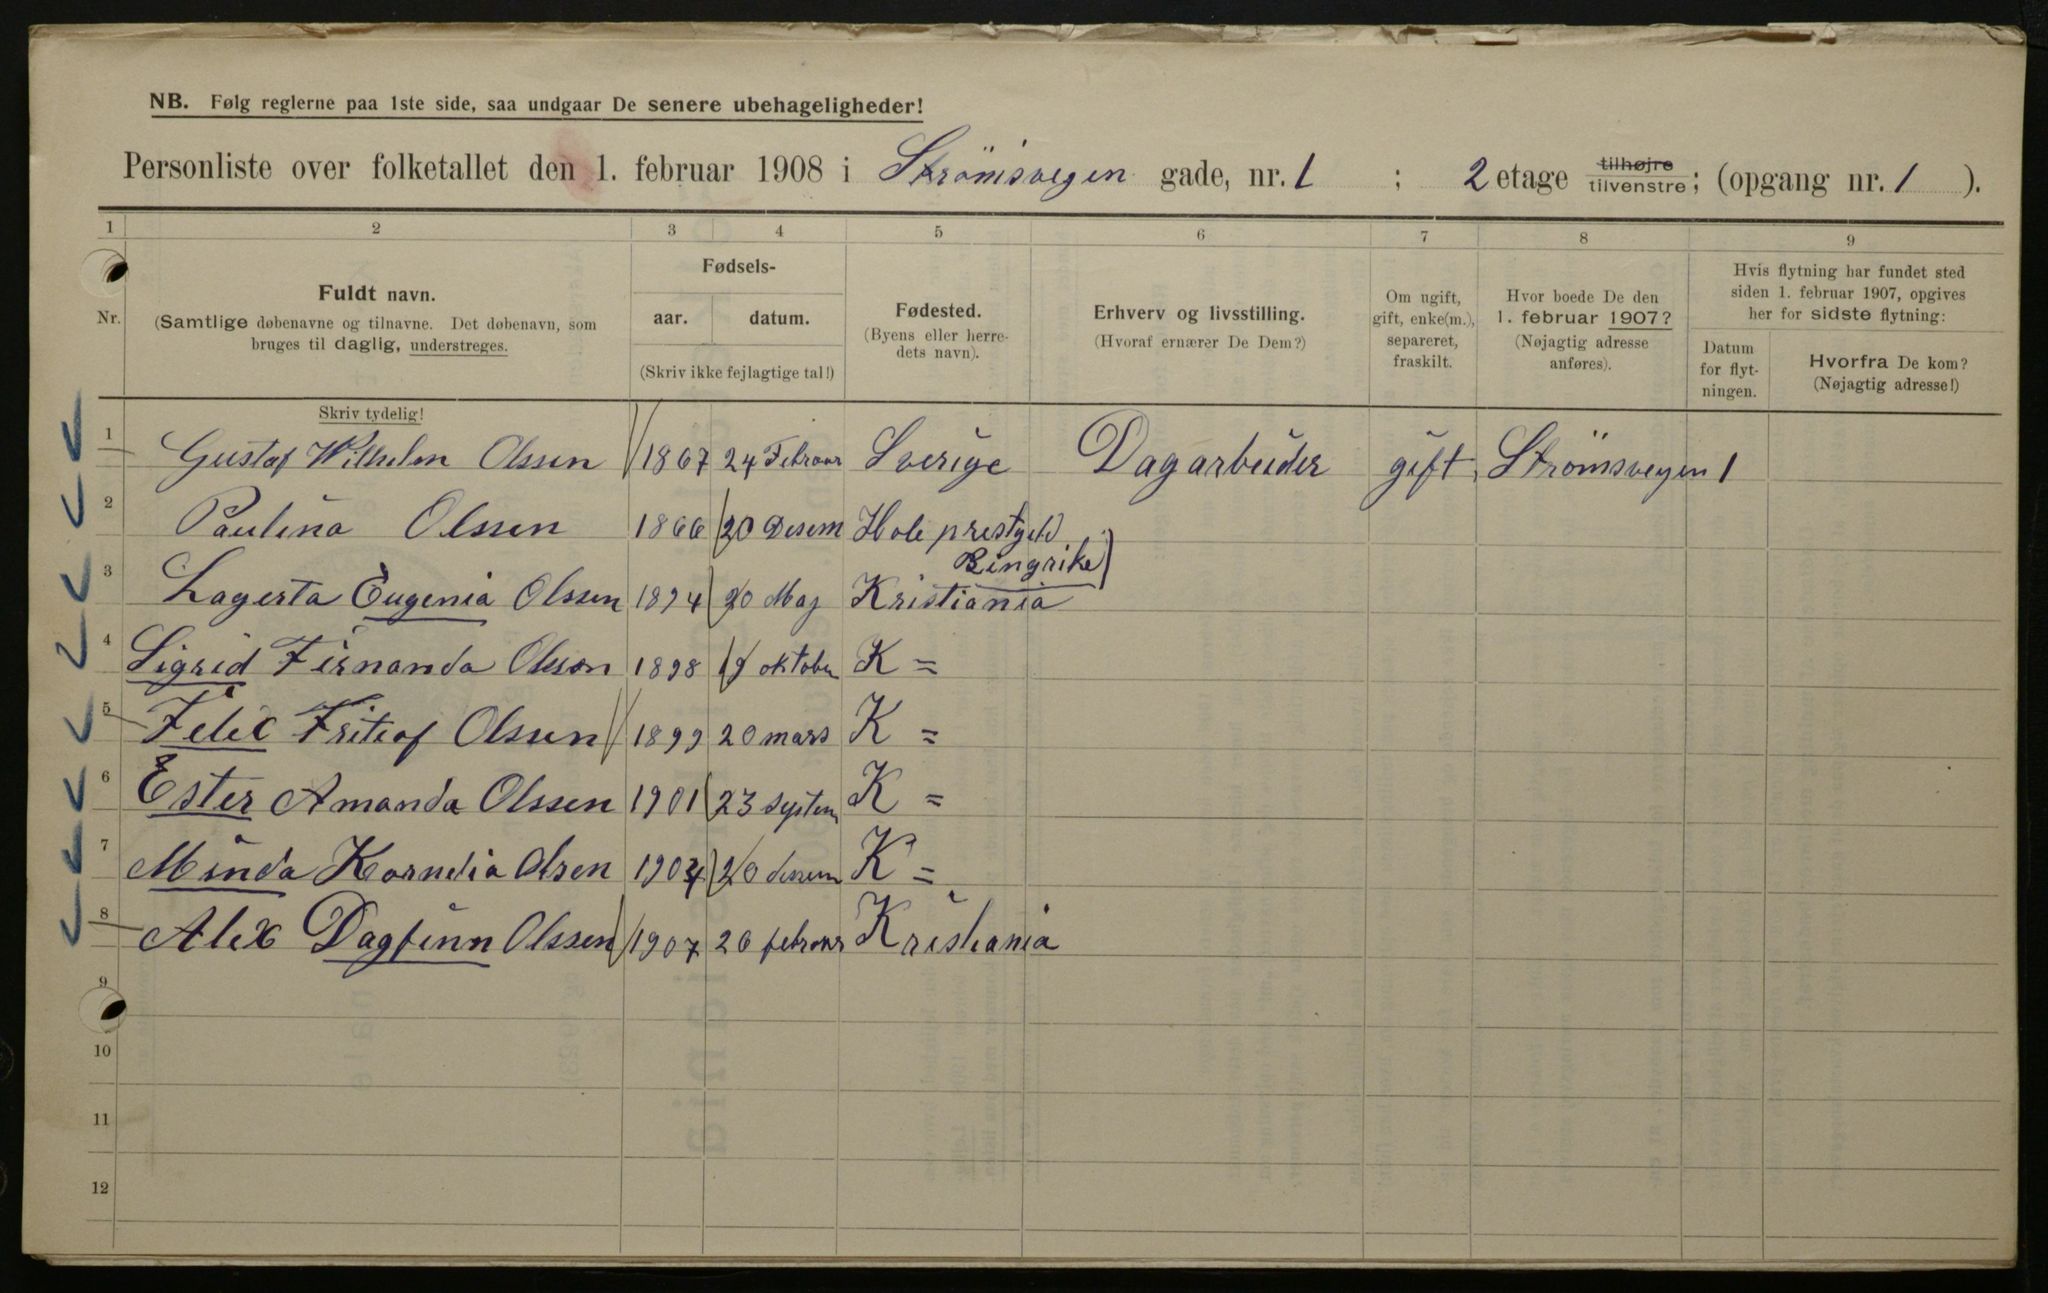 NB. Følg reglerne paa 1ste side, saa undgaar De senere ubehageligheder!
Personliste over folketallet den 1. februar 1908 i Strömsvegen gade, nr. 1 ; 2 etage tilhøjre tilvenstre; (opgang nr. 1 ).
1 2 3 4 5 6 7 8 9
Nr.
Fuldt navn.
(Samtlige døbenavne og tilnavne. Det døbenavn, som
bruges til daglig, understreges.
Skriv tydelig!
Fødsels-
aar. datum.
(Skriv ikke fejlagtige tal!)
Fødested.
(Byens eller herre-
dets navn).
Erhverv og livsstilling.
(Hvoraf ernærer De Dem?)
Om ugift,
gift, enke(m.),
separeret,
fraskilt.
Hvor boede De den
1. februar 1907?
(Nøjagtig adresse
anføres).
Hvis flytning har fundet sted
siden 1. februar 1907, opgives
her for sidste flytning:
Datum
for flyt-
ningen.
Hvorfra De kom?
(Nøjagtig adresse!)
1 Gustaf Wilhelm Olssen 1867 24 Februar Sverige Dagarbeider gift Strömsvegen 1
2 Paulina Olssen 1866 20 Desem Hole prestgeld
Ringrike)
3 Lagerta Eugenia Olssen 1894 20 Maj Kristiania
4 Sigrid Fernanda Olsson 1898 9 oktober K =
5 Felix Fritiof Olssen 1899 20 mars K =
6 Ester Amanda Olssen 1901 23 septem K =
7 Minda Kornelia Olsen 1904 20 desem K =
8 Alex Dagfinn Olssen 1907 26 februar Kristiania
9
10
11
12